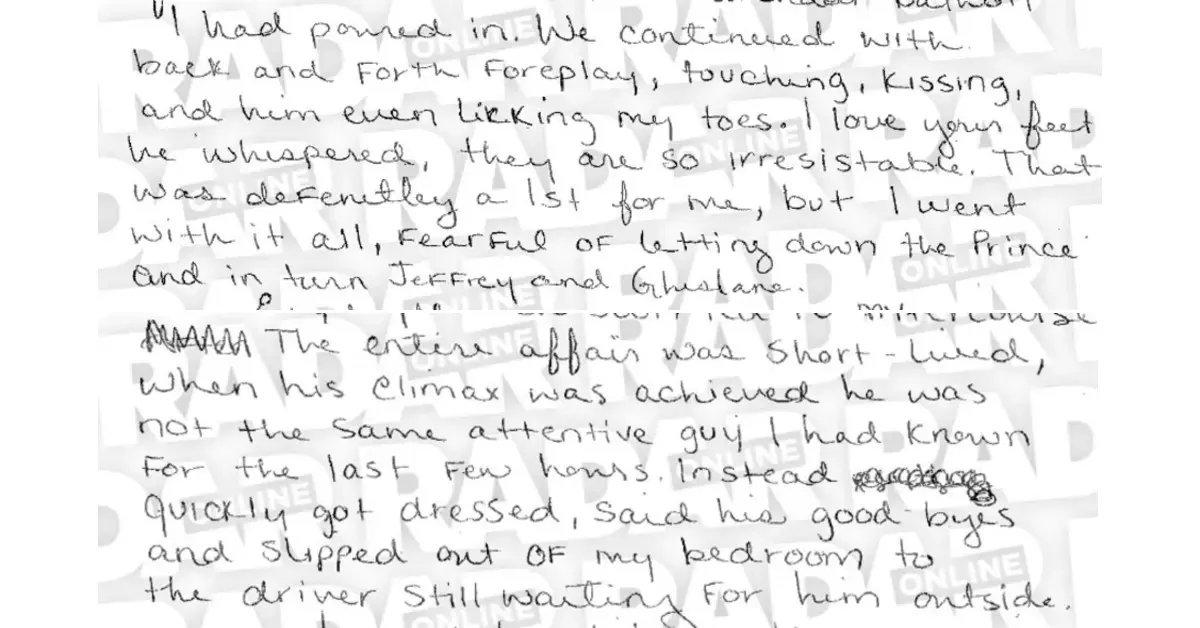 "I had poured in. We continued with
back and forth foreplay, touching, kissing,
and him even licking my toes. I love your feet
he whispered, they are so irresistable. That
was defenitley a 1st for me, but I went
with it all, fearful of letting down the Prince
and in turn Jeffrey and Ghislane.
The entire affair was short-lived,
when his climax was achieved he was
not the same attentive guy I had known
for the last few hours. Instead
quickly got dressed, said his good-byes
and slipped out of my bedroom to
the driver still waiting for him outside.